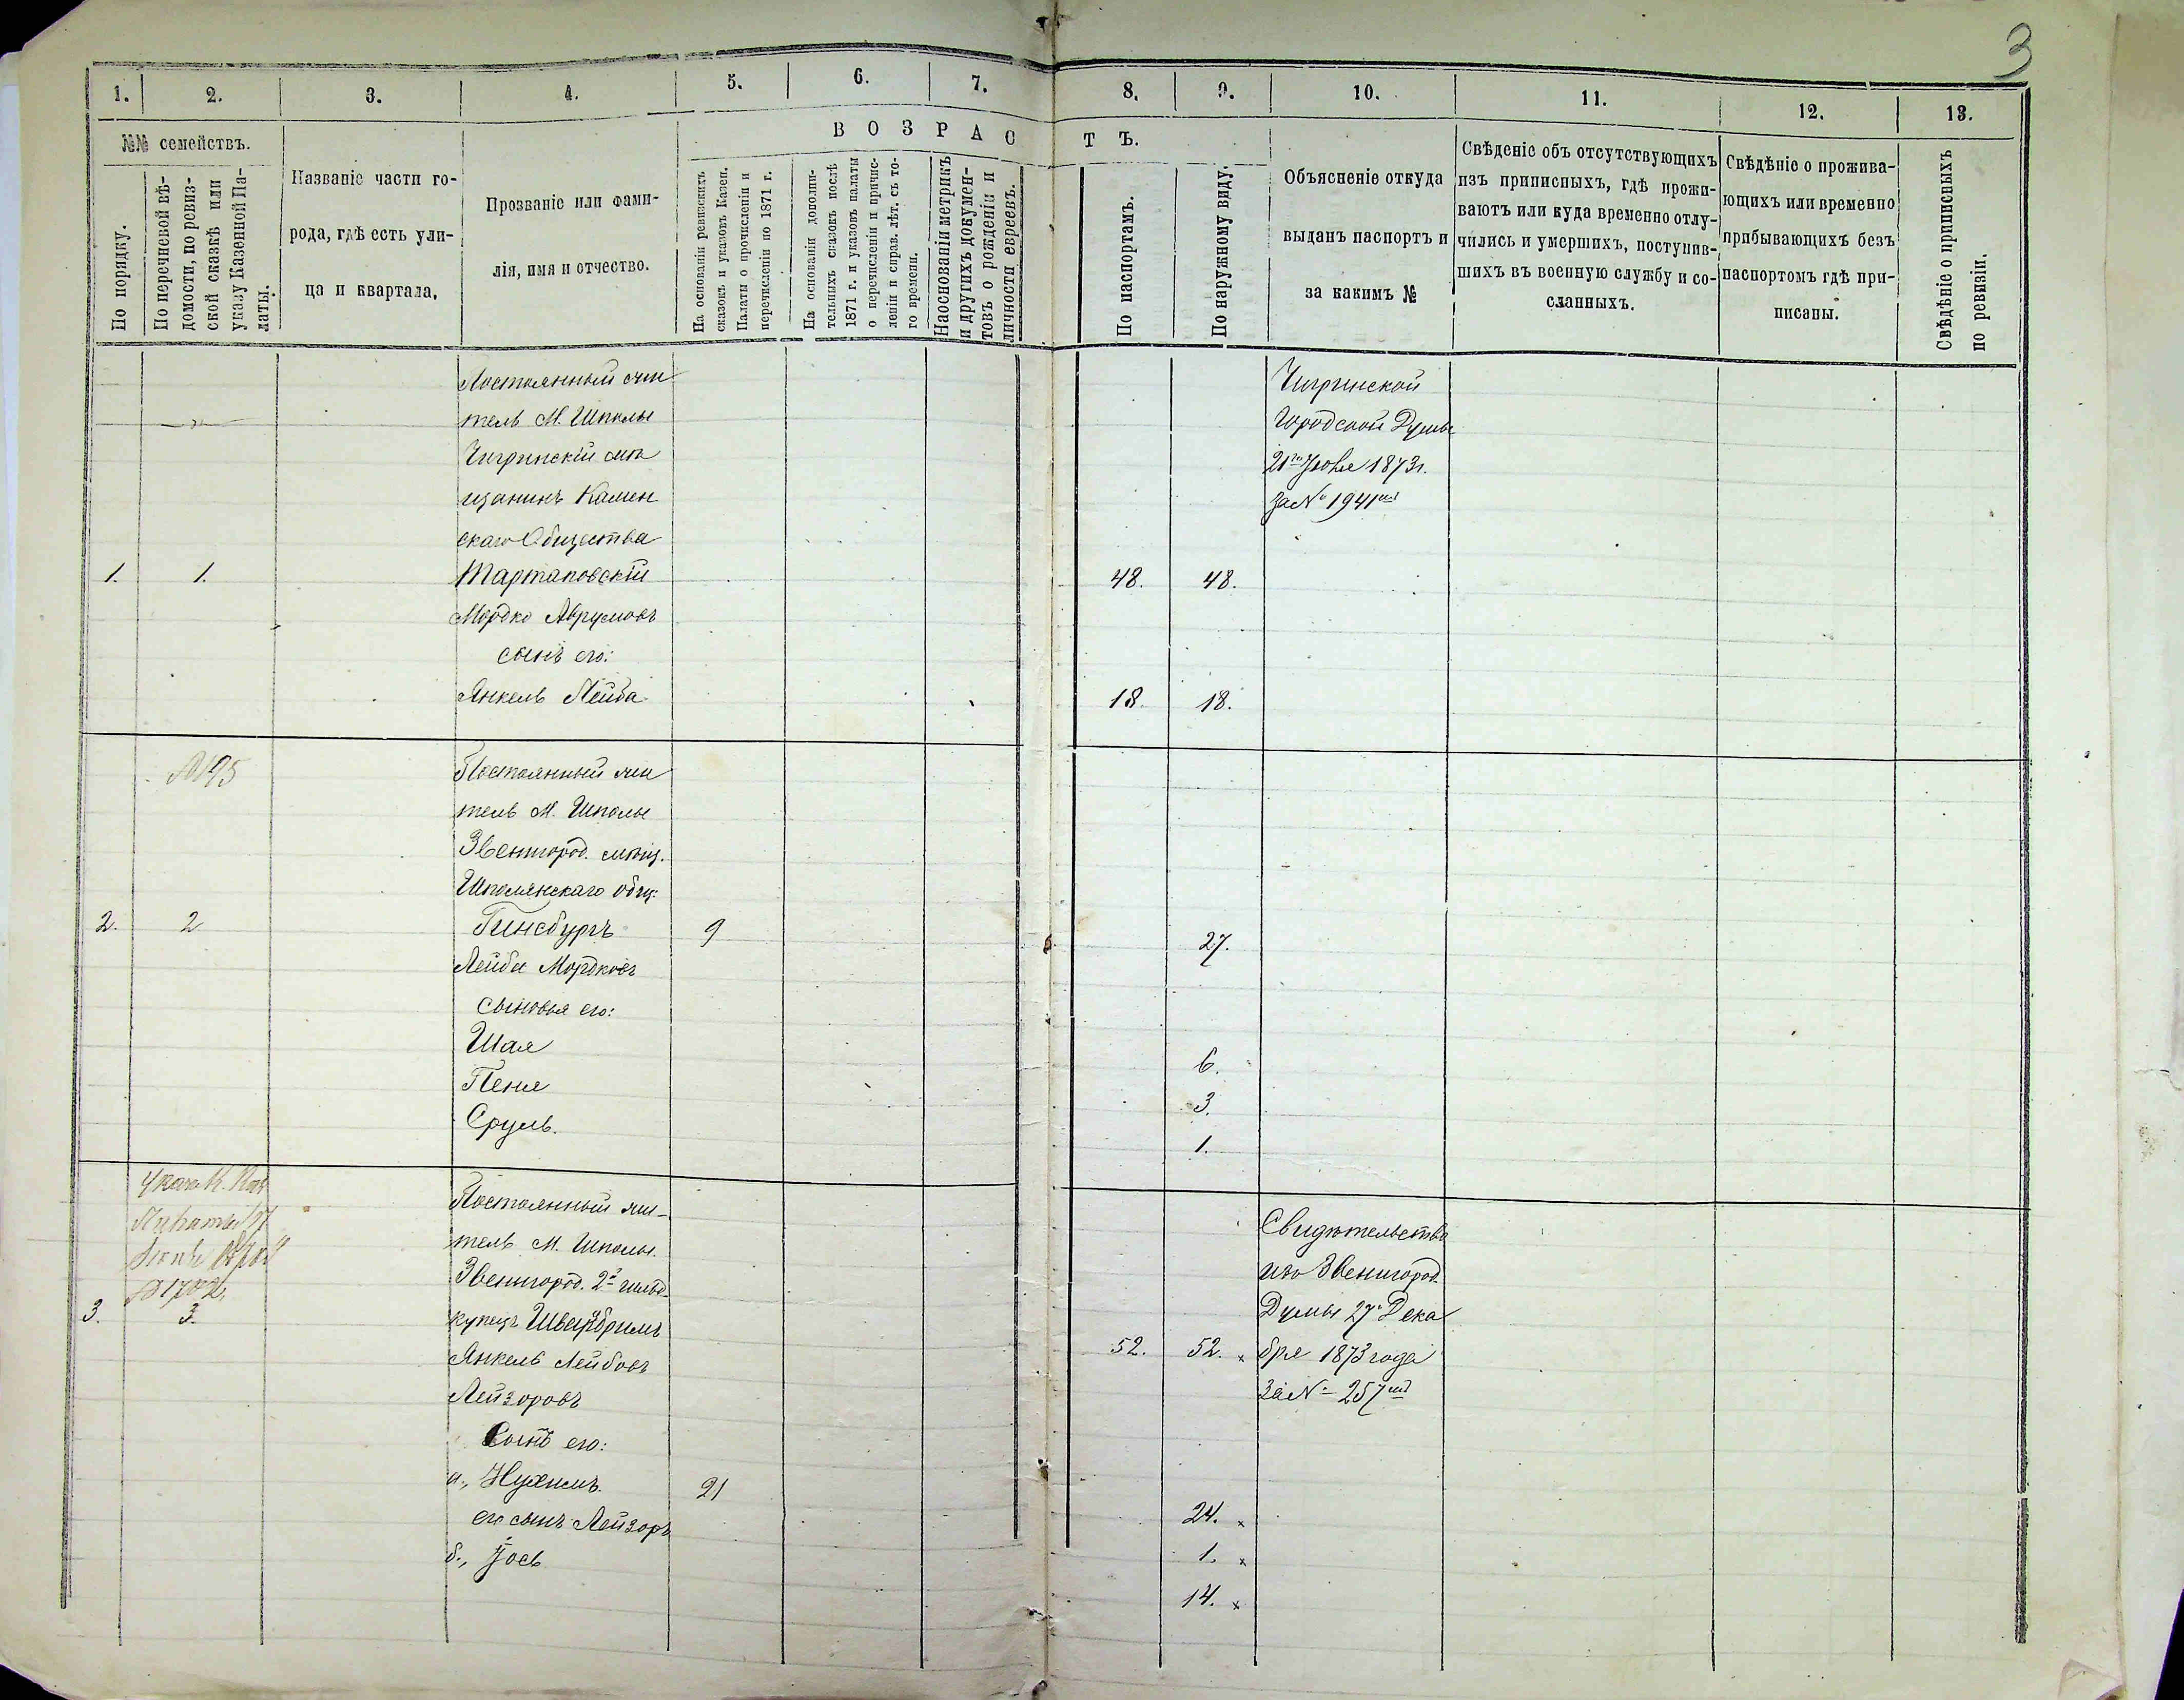 3
1. 2. 3. 4. 5. 6. 7. 8. 9. 10. 11. 12. 13.
№№ семействъ.
По порядку.
По перечневой вѣ-
домости, по ревиз-
ской сказкѣ или
указу Казенной Па-
латы.
Названіе части го-
рода, гдѣ есть ули-
ца и квартала.
Прозваніе или фами-
лія, имя и отчество.
ВОЗРАСТЪ.
На основаніи ревизскихъ
сказокъ и указовъ Казен.
Палаты о причисленіи и
перечисленіи по 1871 г.
На основаніи дополни-
тельныхъ сказокъ послѣ
1871 г. и указовъ палаты
о перечисленіи и причис-
леніи и справ. лѣт. съ то-
го времени.
На основаніи метрикъ
и другихъ докумен-
товъ о рожденіи и
личности евреевъ.
По паспортамъ.
По наружному виду.
Объясненіе откуда
выданъ паспортъ и
за какимъ №
Свѣденіе объ отсутствующихъ
изъ приписныхъ, гдѣ прожи-
ваютъ или куда временно отлу-
чились и умершихъ, поступив-
шихъ въ военную службу и со-
сланныхъ.
Свѣдѣніе о прожива-
ющихъ или временно
прибывающихъ безъ
паспортомъ гдѣ при-
писаны.
Свѣдѣніе о приписныхъ
по ревизіи.
Постоянный жи
тель М. Шполы
Чигринскій мѣ
щанинъ Камен
скаго Общества
1. 1. Тартаковскій 48. 48.
Мордко Аврумовъ
сынъ его:
Янкель Лейба 18. 18.
Чигринской
Городской Думы
21го Іюля 1873 г.
за № 1941
№195
Постоянный жи
тель М. Шполы
Звенигород. мѣщ.
Шполянскаго общ:
2. 2 Гинсбургъ 9 27.
Лейба Мордковъ
сыновья его:
Шая 6.
Пеня 3.
Сруль. 1.
Постоянный жи-
тель М. Шполы.
Звенигород. 2й гильд.
3. 3. купецъ
Янкель Лейбовъ 52. 52. x
Лейзоровъ
Сынъ его:
а., Нухимъ 21 24. x
его сынъ Лейзоръ 1. x
б., Іось 14. x
Свидѣтельство
изъ Звенигород.
Думы 27 Дека
бря 1873 года
За № 257